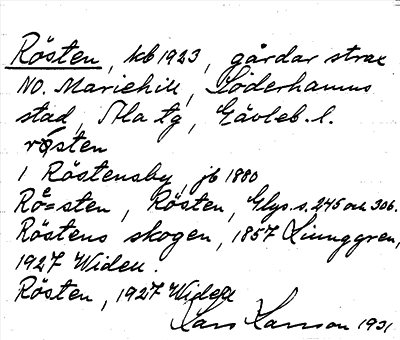 Rösten, kb 1923, gårdar strax
NO. Mariehill, Söderhamns
stad, Ala tg, Gävleb. l.
rösten
i Röstensby, jb 1880
Rö=sten, Rösten, Glys. s. 245 och 306.
Röstens skogen, 1857 Liunggren,
1927 Widell.
Rösten, 1927 Widell
Lars Larsson 1931